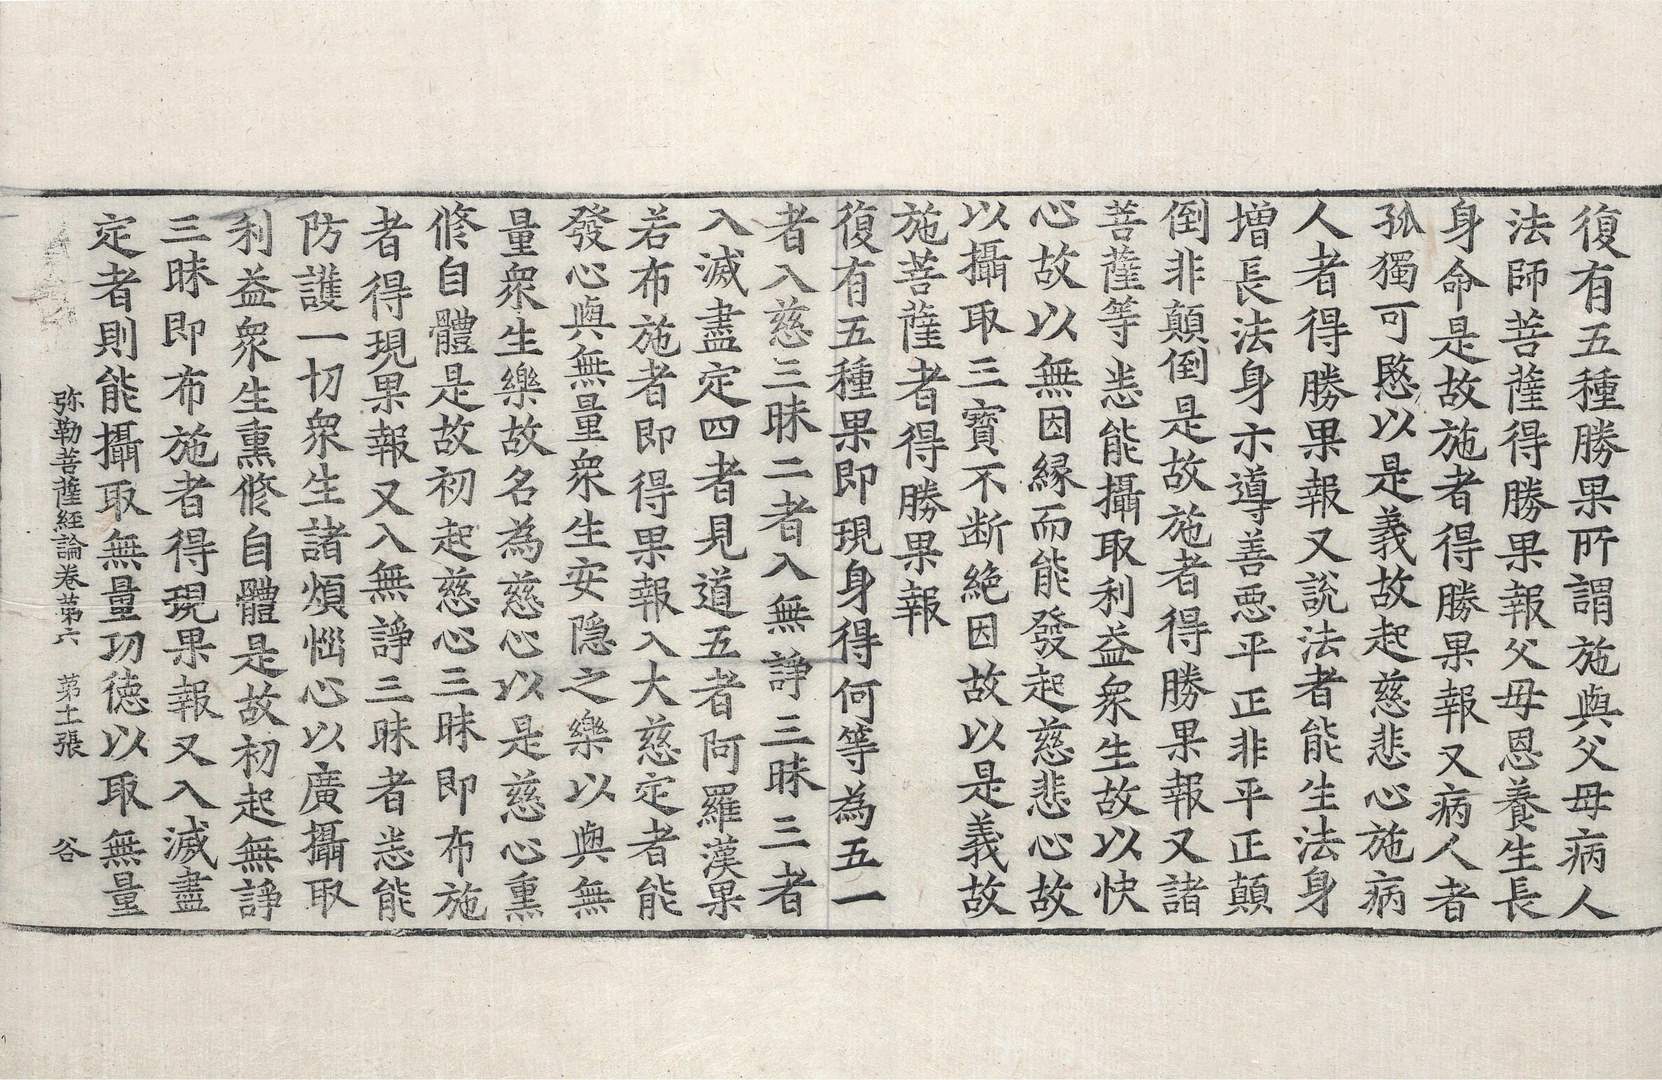 復有五種勝果所謂施與父母病人
法師菩薩得勝果報父母恩養生長
身命是故施者得勝果報又病人者
孤獨可愍以是義故起慈悲心施病
人者得勝果報又說法者能生法身
增長法身亦導善惡平正非平正顛
倒非顛倒是故施者得勝果報又諸
菩薩等悉能攝取利益衆生故以快
心故以無因緣而能發起慈悲心故
以攝取三寶不断絕因故以是義故
施菩薩者得勝果報
復有五種果即現身得何等為五一
者入慈三昧二者入無諍三昧三者
入滅盡定四者見道五者阿羅漢果
若布施者即得果報入大慈定者能
發心與無量衆生安隱之樂以與無
量衆生樂故名為慈心以是慈心熏
修自體是故初起慈心三昧即布施
者得現果報又入無諍三昧者悉能
防護一切衆生諸煩惱心以廣攝取
利益衆生熏修自體是故初起無諍
三昧即布施者得現果報又入滅盡
定者則能攝取無量功德以取無量
弥勒菩薩経論卷第六 第十一張 谷